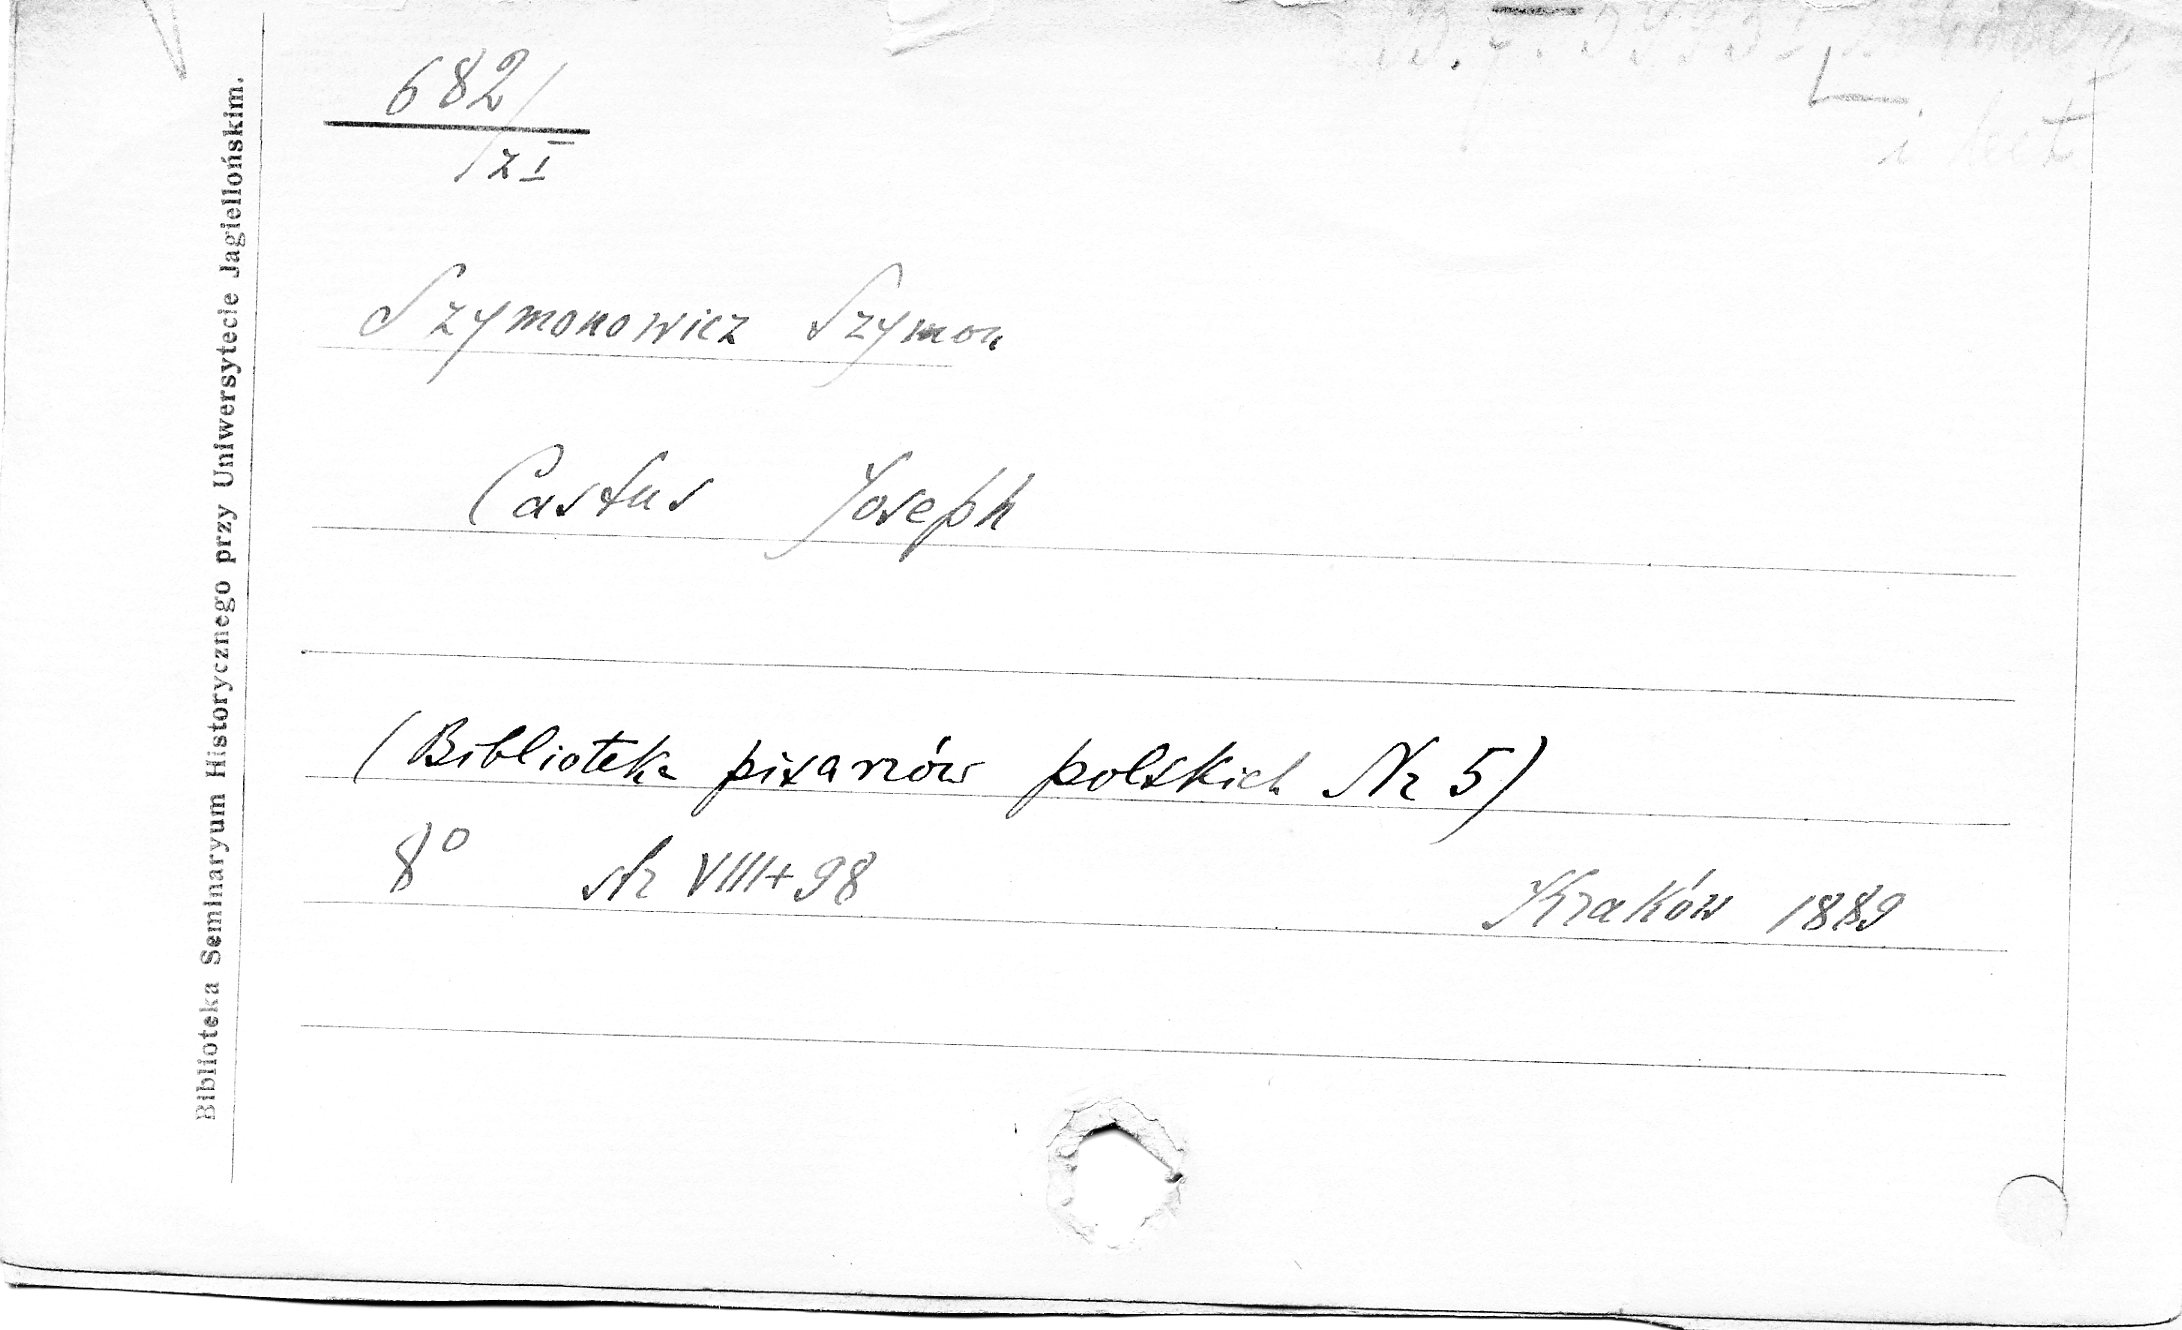 682/
z I
Szymonowicz Szymon
Castus Joseph
(Biblioteka pisarzów polskich Nr 5)
8° str VIII+98 Kraków 1889
Biblioteka Seminaryum Historycznego przy Uniwersytecie Jagiellońskim.